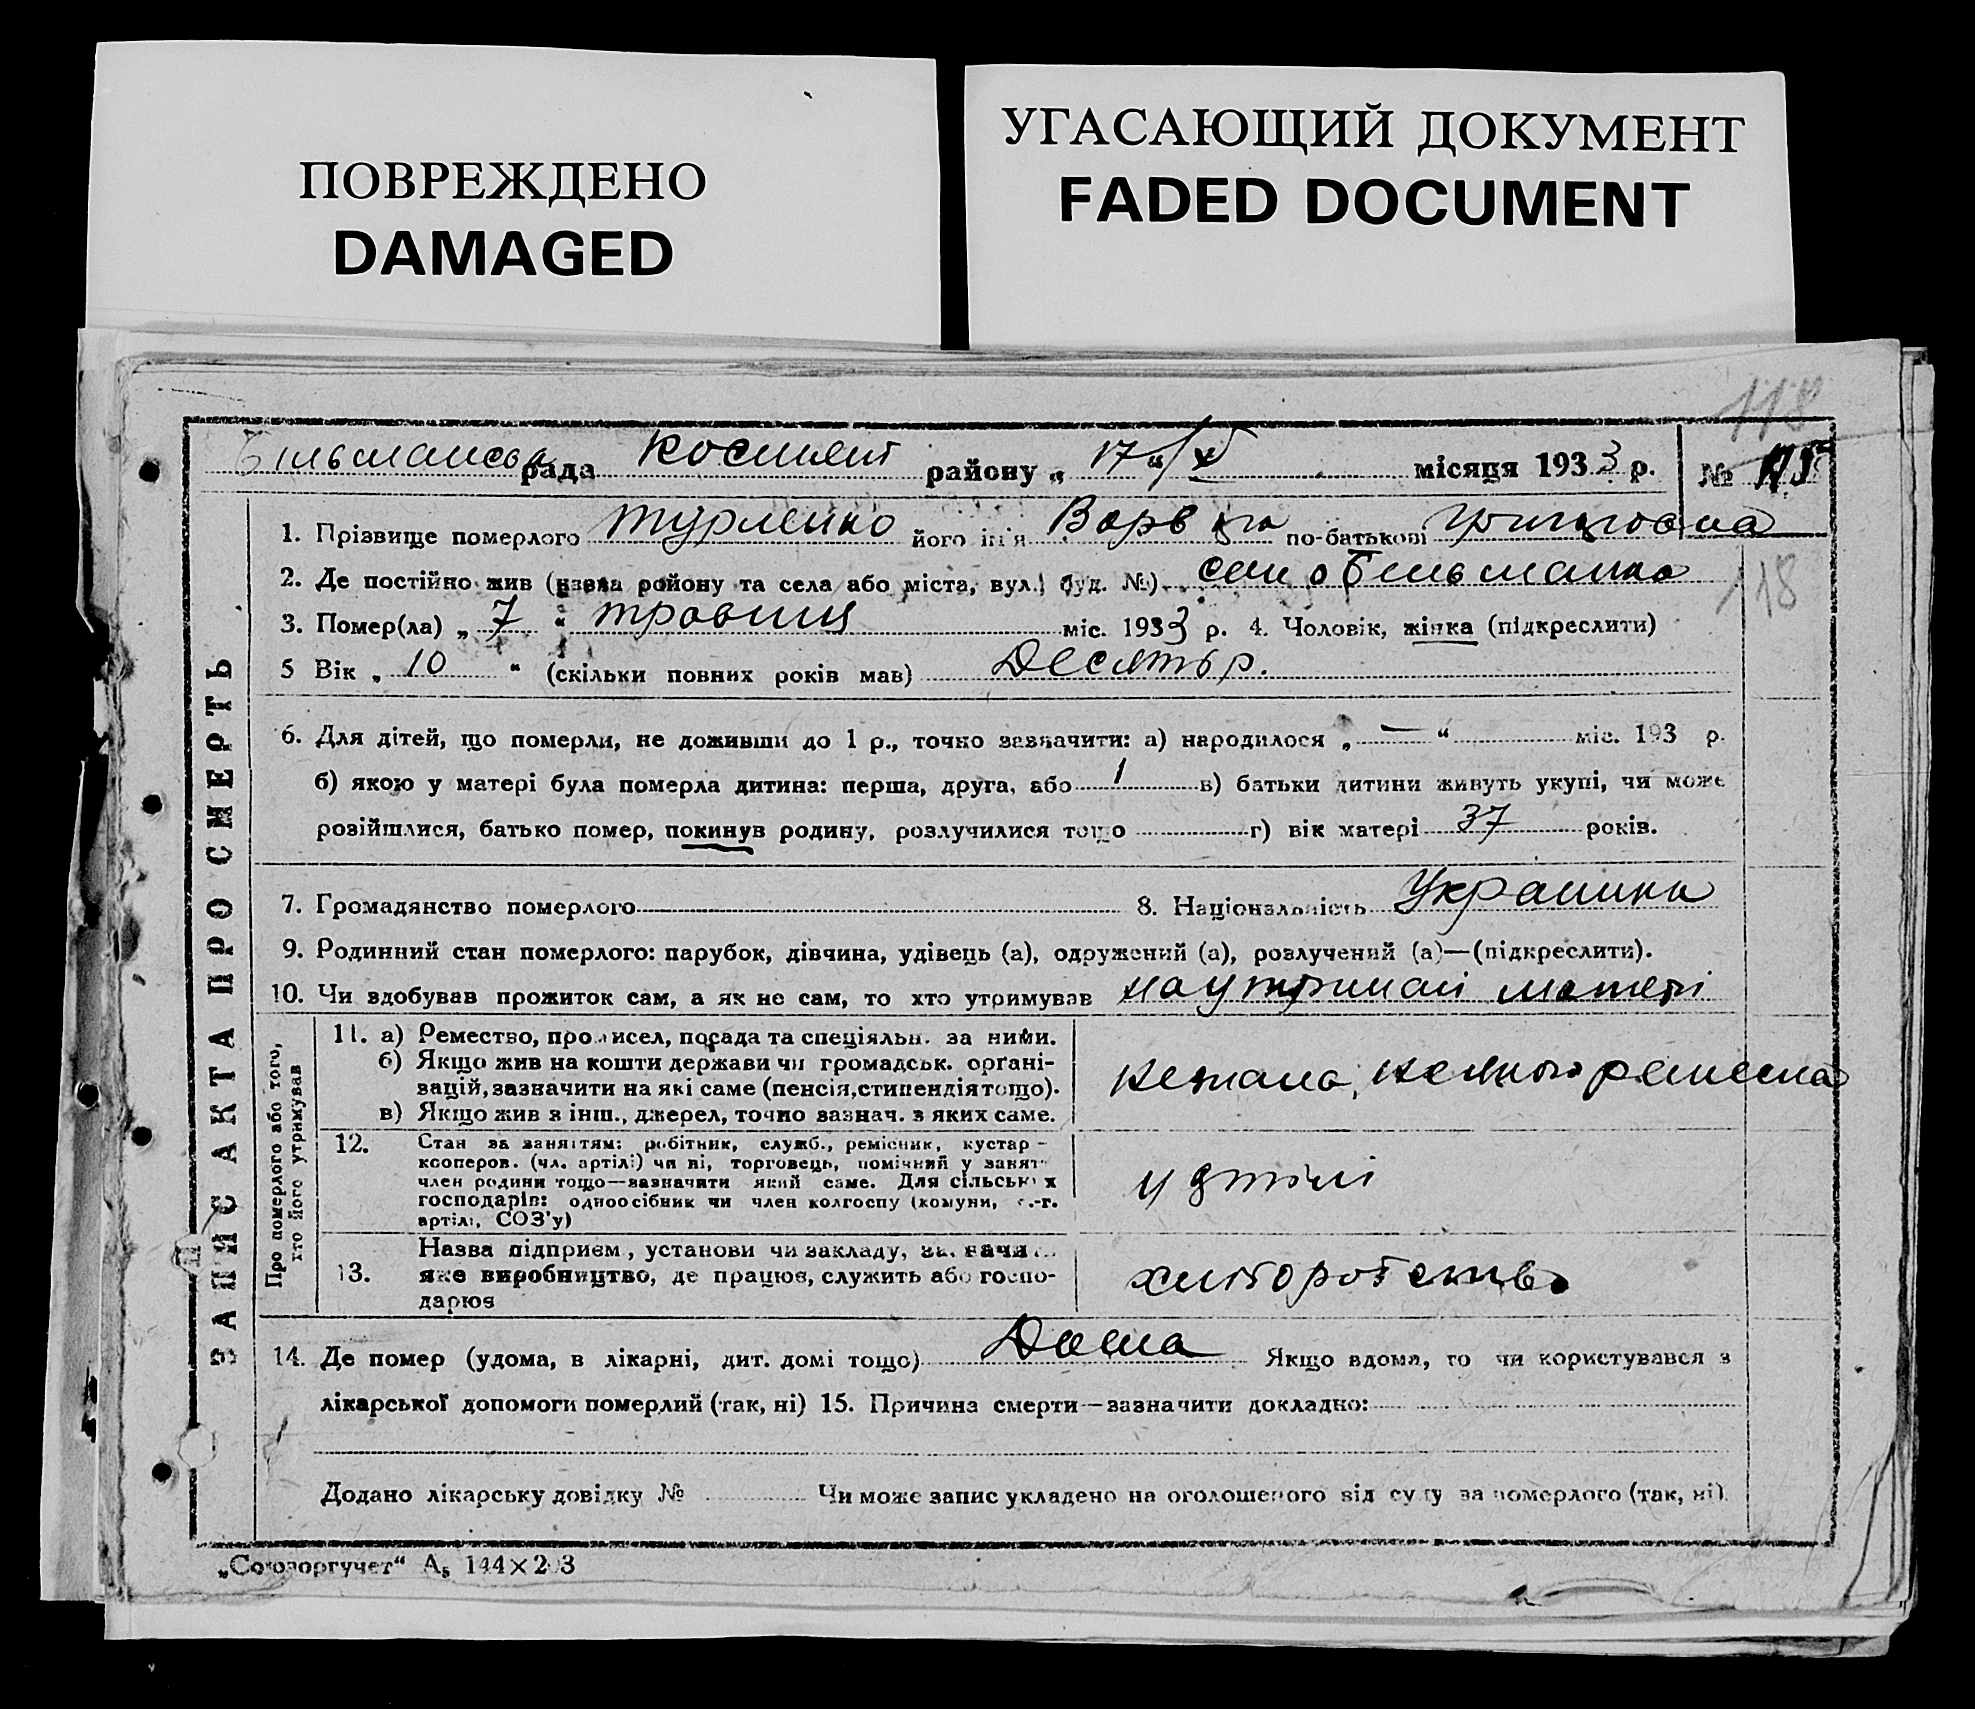 ПОВРЕЖДЕНО
DAMAGED
УГАСАЮЩИЙ ДОКУМЕНТ
FADED DOCUMENT
118
рада району „ 17 “ місяця 1933 р. №
1. Прізвище померлого Турленко його ім'я Варв по-батькові
2. Де постійно жив (назва району та села або міста, вул., буд. №) село Більманка
118
3. Помер(ла) „ 7 “ травня міс. 1933 р. 4. Чоловік, жінка (підкреслити)
5 Вік „ 10 “ (скільки повних років мав) Десять р.
6. Для дітей, що померли, не доживши до 1 р., точно зазначити: а) народилося „ — “ міс. 193 р.
б) якою у матері була померла дитина: перша, друга, або 1 в) батьки дитини живуть укупі, чи може
розійшлися, батько помер, покинув родину, розлучилися тощо г) вік матері 37 років.
7. Громадянство померлого 8. Національність Украинка
9. Родинний стан померлого: парубок, дівчина, удівець (а), одружений (а), розлучений (а)—(підкреслити).
10. Чи здобував прожиток сам, а як не сам, то хто утримував на утриман матері
ЗАПИС АКТА ПРО СМЕРТЬ
Про померлого або того, хто його утримував
11. а) Ремество, промисел, посада та спеціяльн. за ними.
б) Якщо жив на кошти держави чи громадськ. орґані-
зацій, зазначити на які саме (пенсія, стипендія тощо).
в) Якщо жив з інш., джерел, точно зазнач. з яких саме.
12. Стан за заняттям: робітник, служб., ремісник, кустар –
кооперов. (чл. артілі) чи ні, торговець, помічний у занятт
член родини тощо—зазначити який саме. Для сільських
господарів: одноосібник чи член колгоспу (комуни, с.-г.
артілі, СОЗ'у)
13. Назва підприєм., установи чи закладу, зазначити
яке виробництво, де працює, служить або госпо-
дарює
14. Де помер (удома, в лікарні, дит. домі тощо) Дома Якщо вдома, то чи користувався з
лікарської допомоги померлий (так, ні) 15. Причина смерти—зазначити докладно:
Додано лікарську довідку № Чи може запис укладено на оголошеного від суду за померлого (так, ні)
„Союзоргучет“ А₅ 144×203